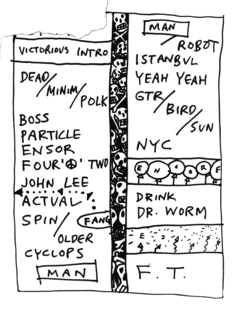 VICTORIOUS INTRO
DEAD/
MINIM/
POLK
BOSS
PARTICLE
ENSOR
FOUR '☮' TWO
JOHN LEE
ACTUAL?
SPIN/ FANG
OLDER
CYCLOPS
MAN
MAN
/ROBOT
ISTANBUL
YEAH YEAH
GTR/
BIRD/
SUN
NYC
ENCORE
DRINK
DR. WORM
E 2
F. T.